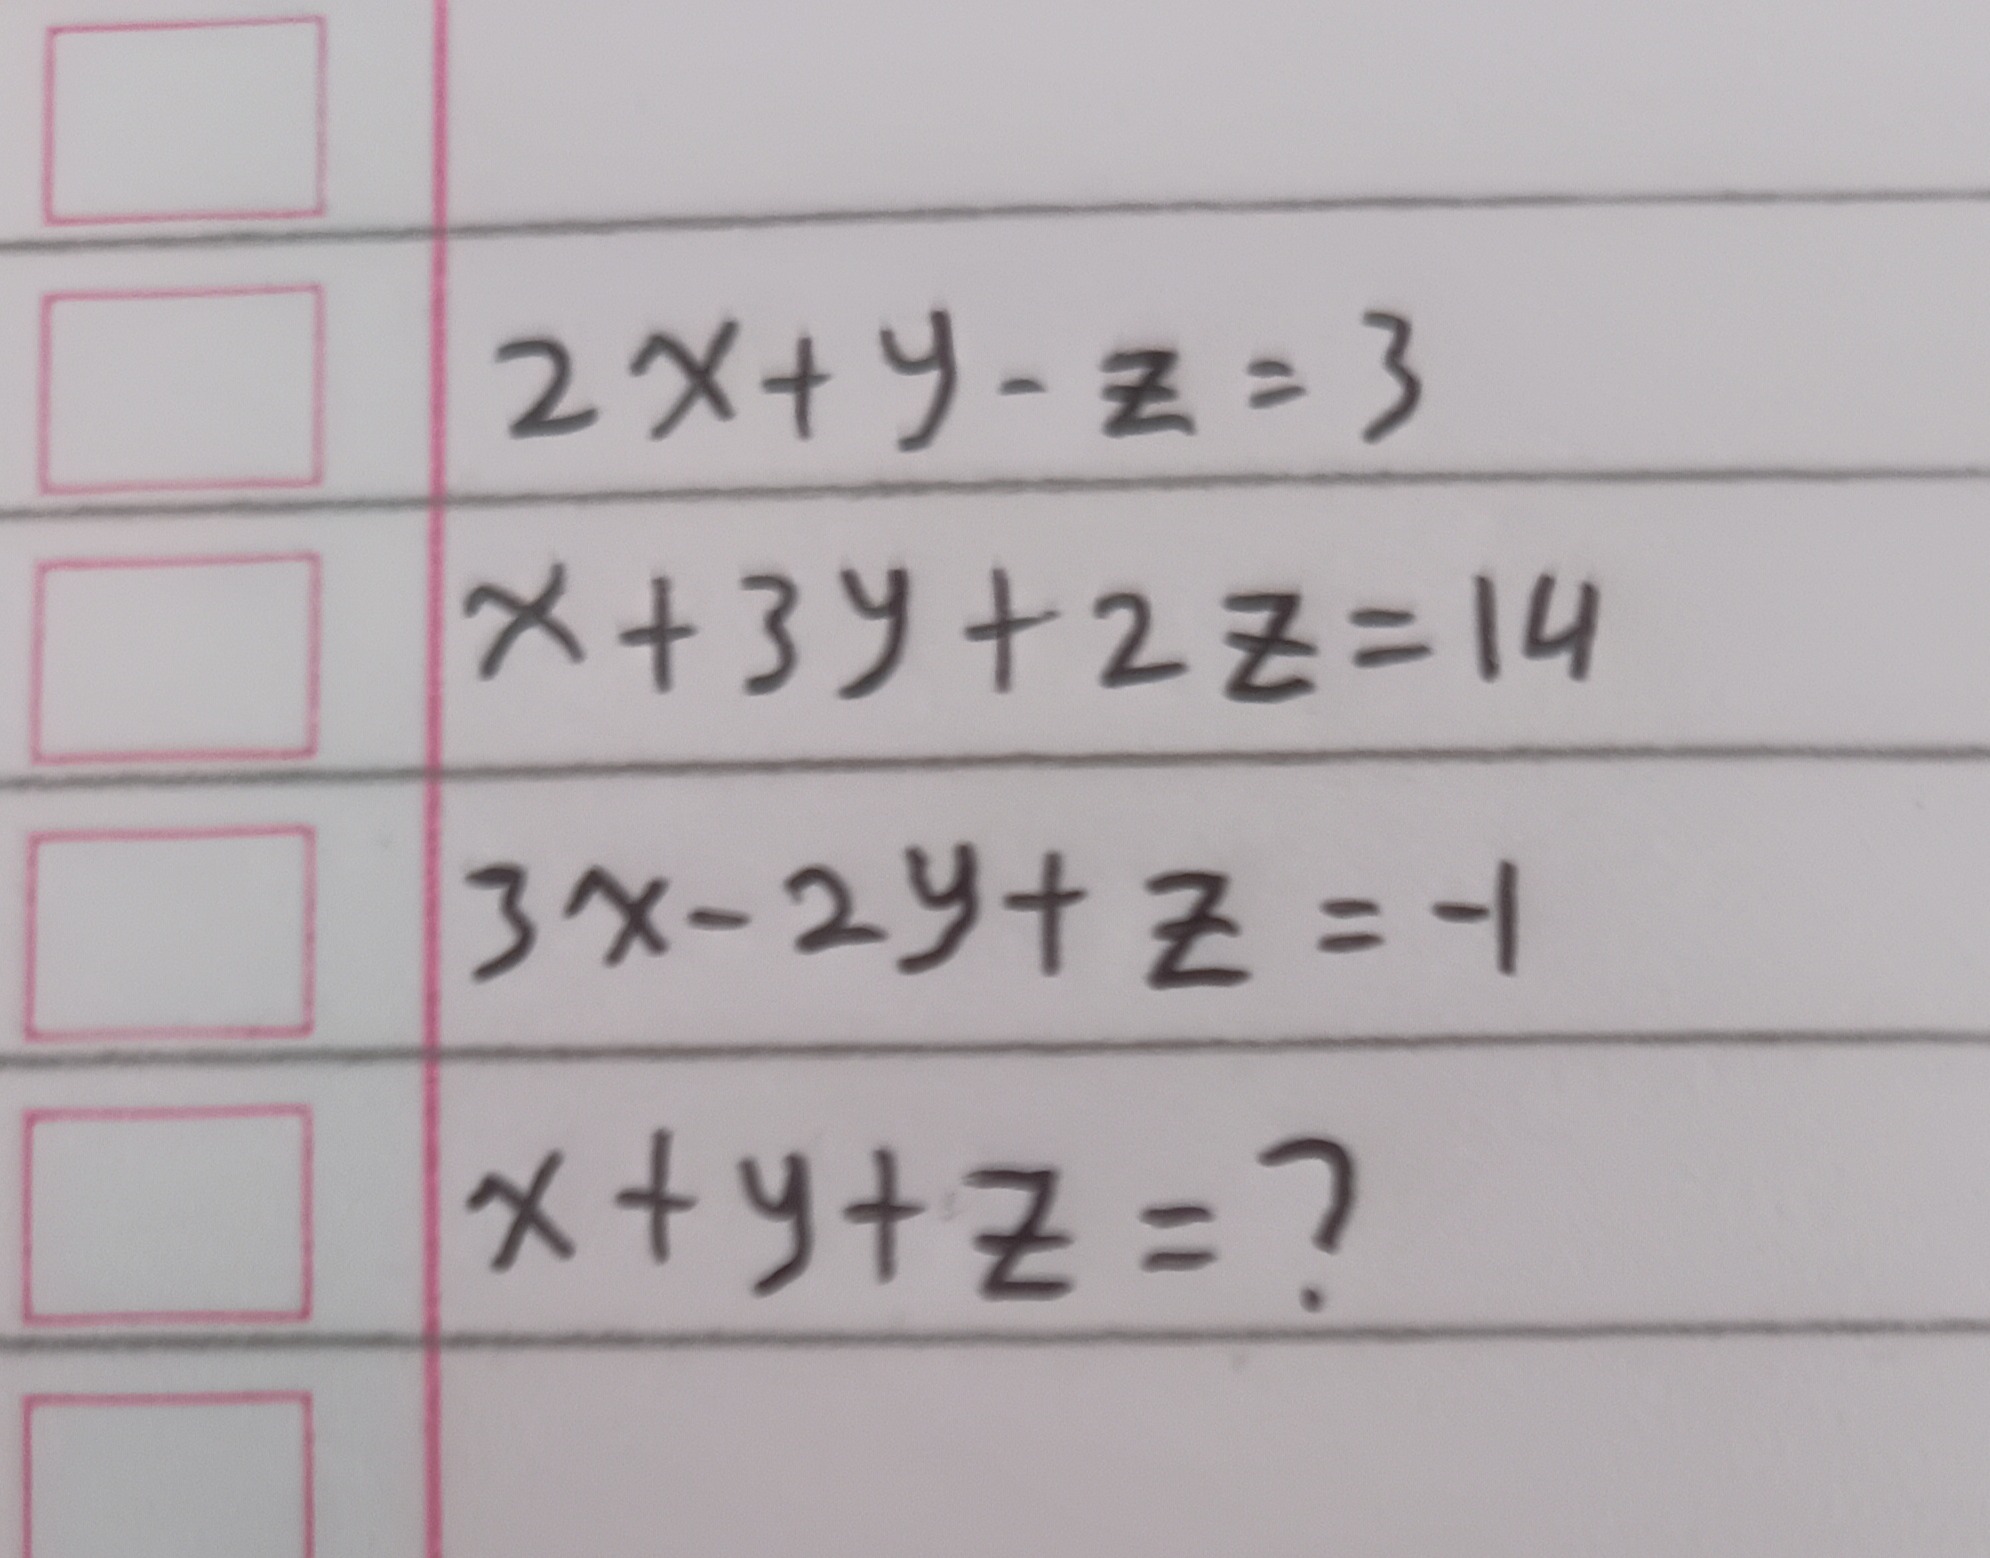 2x+y-z=3
x+3y+2z=14
3x-2y+z=-1
x+y+z=?